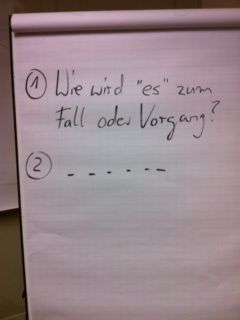 ① Wie wird "es" zum
Fall oder Vorgang?
② - - - - - -